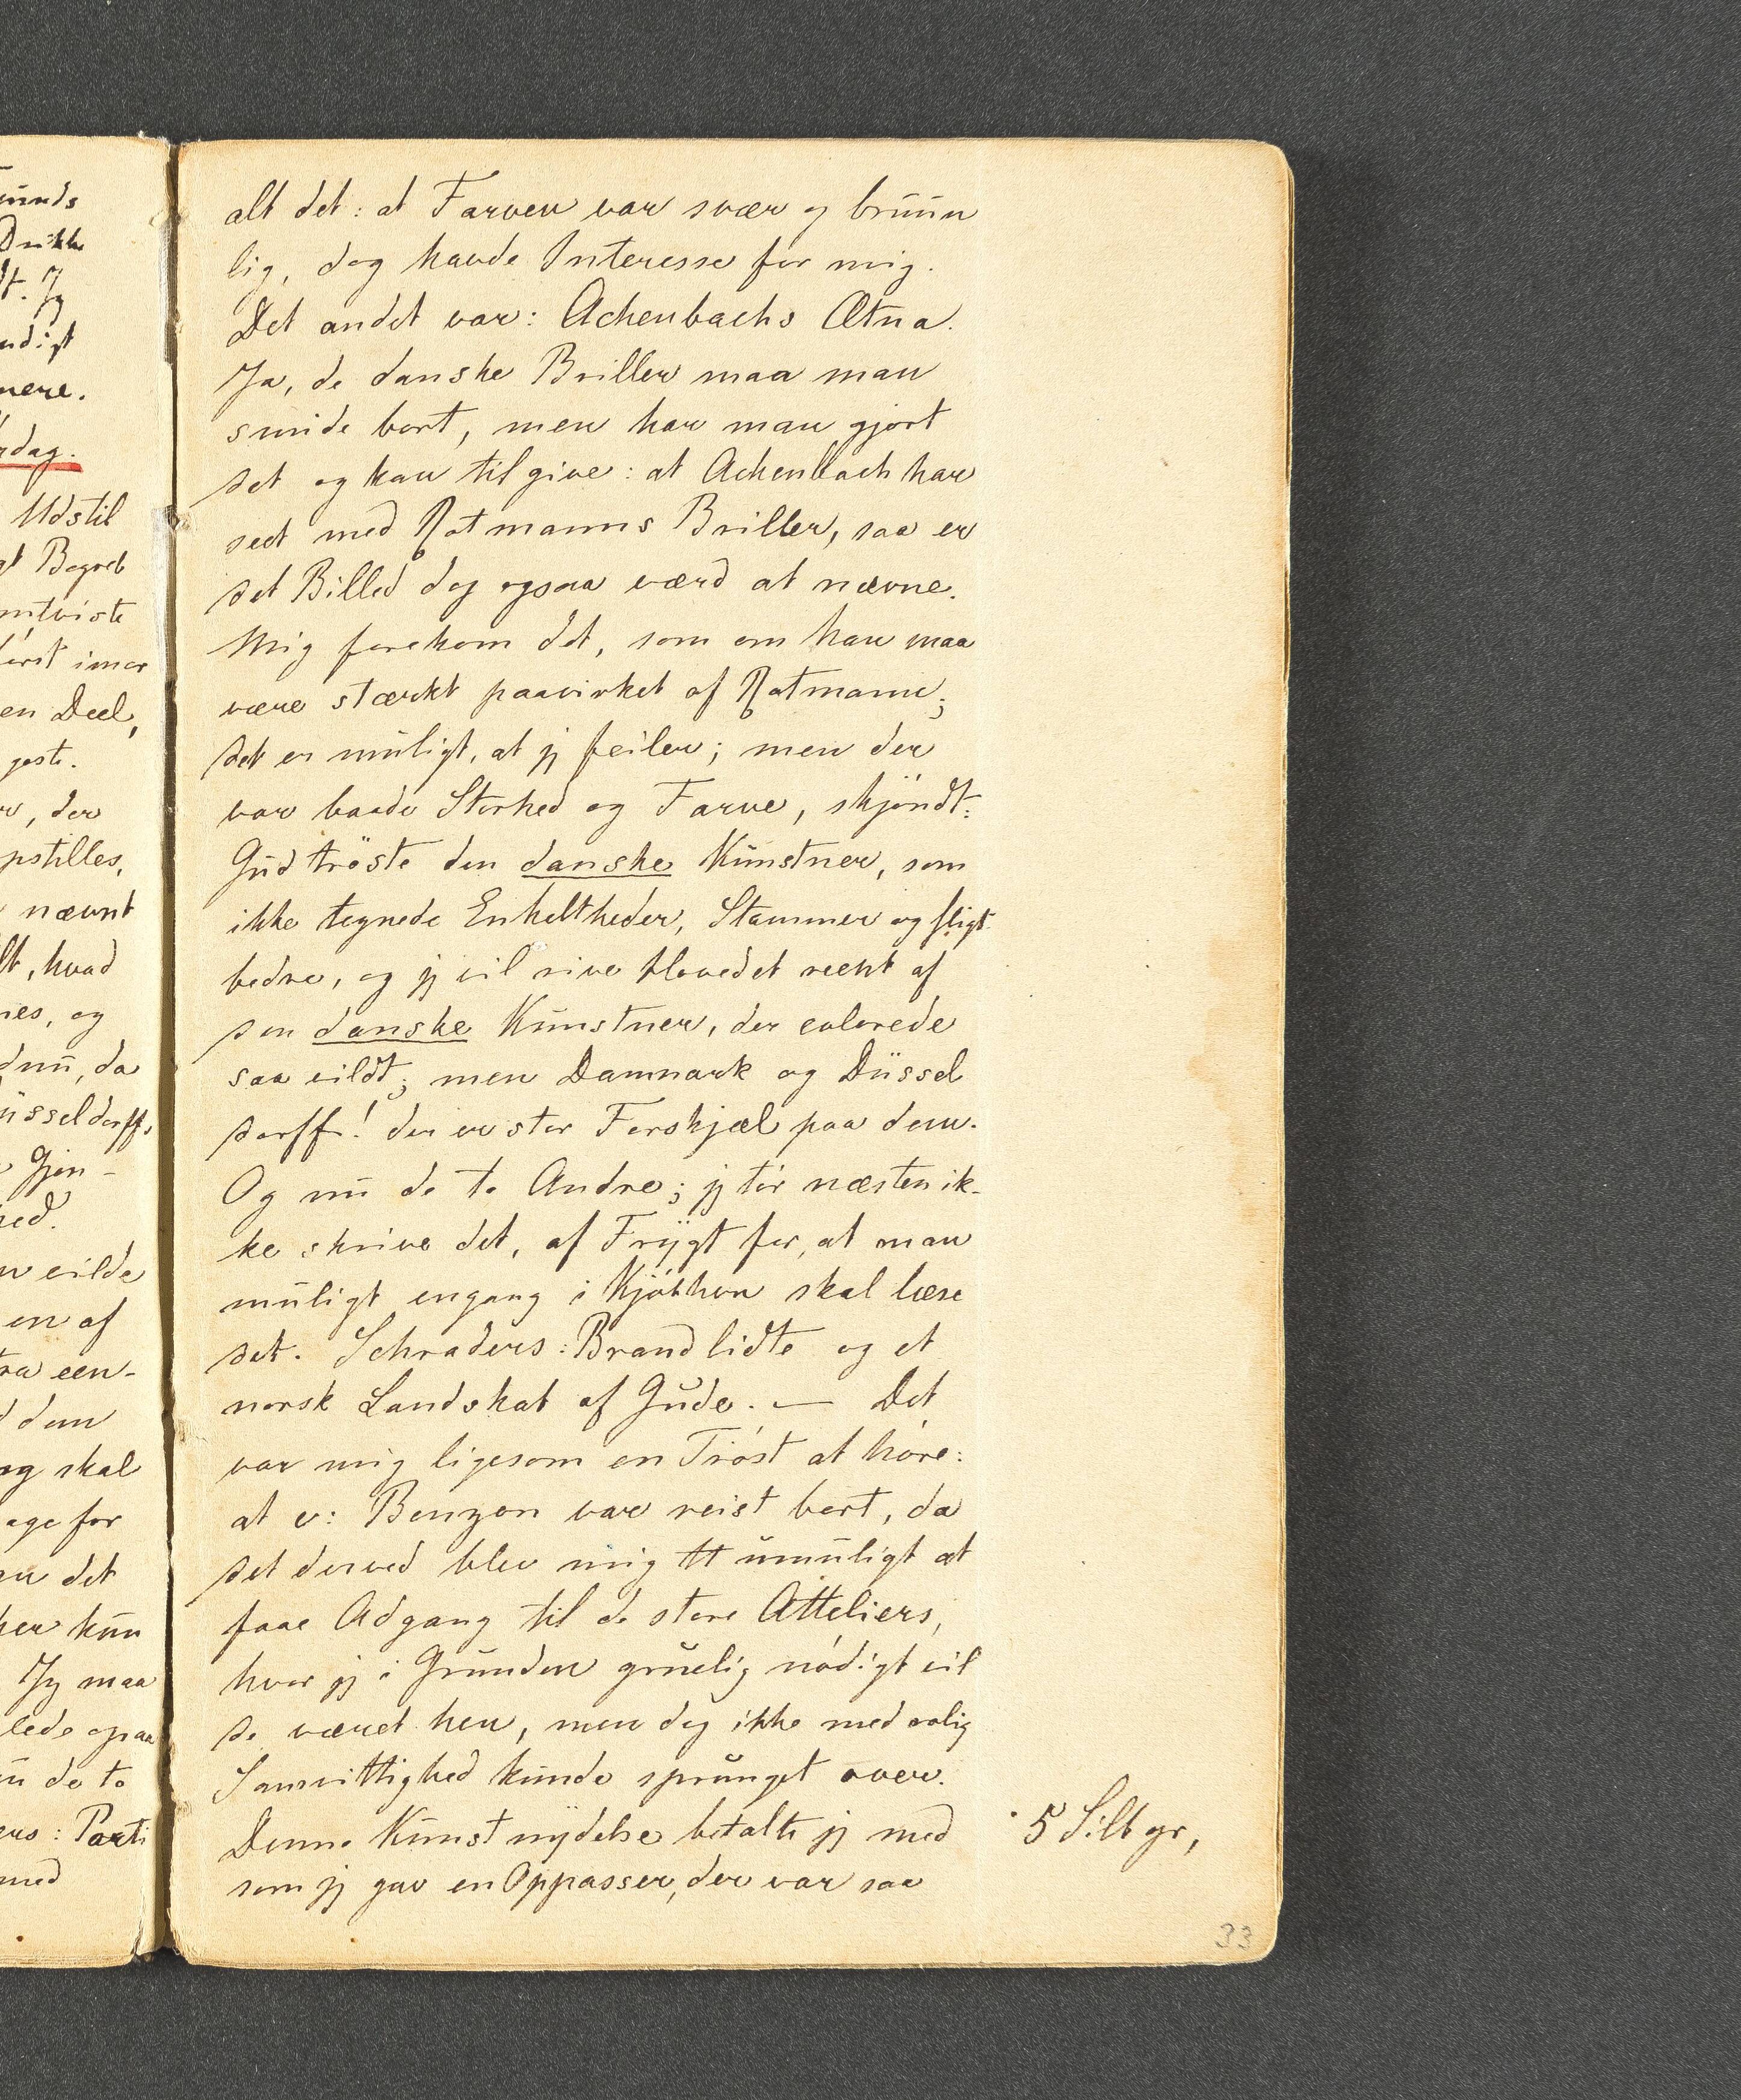 unds
Drikke
dt. Jg
ndigt
nere.
rdag.
Udstil
gt Begreb
mtviste
først imor
en Deel,
geste.
, der
pstilles,
nævnt
lt, hvad
nes, og
dnu, da
üsseldorffs
Gjen-
hed.
vilde
en af
ra een-
d dem
og skal
age for
det
her kun
Jg maa
lede opaa
nu de to
ers: Parti
med
alt det: at Farven var svær og bruun
lig, dog havde Interesse for mig.
Det andet var: Achenbachs Ætna.
Ja, de danske Briller maa man
smide bort, men har man gjort
det og kan tilgive: at Achenbach har
seet med Rotmanns Briller, saa er
det Billed dog ogsaa værd at nævne.
Mig forekom det, som om han maa
være stærkt paavirket af Rotmann;
det er muligt, at jg feiler; men der
var baade Storhed og Farve, skjøndt:
Gud trøste den danske Kunstner, som
ikke tegnede Enkeltheder, Stammer og sligt
bedre, og jg vil rive Hovedet reent af
den danske Kunstner, der colorede
saa vildt; men Damnark og Düssel
dorff! der er stor Forskjæl paa dem.
Og nu de to Andre; jg tør næsten ik-
ke skrive det, af Frygt for, at man
muligt engang i Kjøbhvn skal læse
det. Schraders: Brandlidte og et
norsk Landskab af Gude. — Det
var mig ligesom en Trøst at høre:
at v: Benzon var reist bort, da
det derved blev mig tt umuligt at
faae Adgang til de store Atteliers,
hvor jg i Grunden gruelig nødigt vil
de været hen, men dog ikke med rolig
Samvittighed kunde sprunget over.
Denne Kunstnydelse betalte jg med
5 Silbgr,
som jg gav en Oppasser, der var saa
33